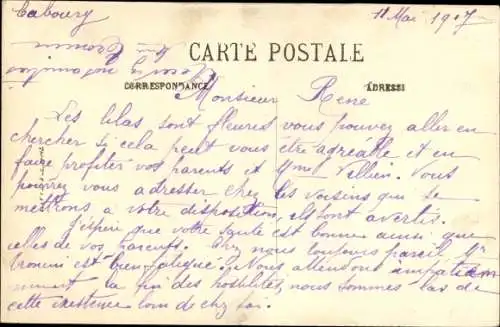 Cabourg 11 Mai 1917
CARTE POSTALE
CORRESPONDANCE ADRESSE
Monsieur Rene
Les lilas sont fleures vous pouvez aller en
chercher si cela peut vous etre agreable et en
faire profiter vos parents et Mme. Vous
pourrez vous adresser chez les voisins qui se
mettrons a votre disposition, ils sont avertis.
J'espere que votre sante est bonne ainsi que
celles de vos parents. Chez nous toujours pareil, Mr
est bien fatigué. Nous attendons impatiem
ment la fin des hostilités, nous sommes las de
cette existence loin de chez soi.